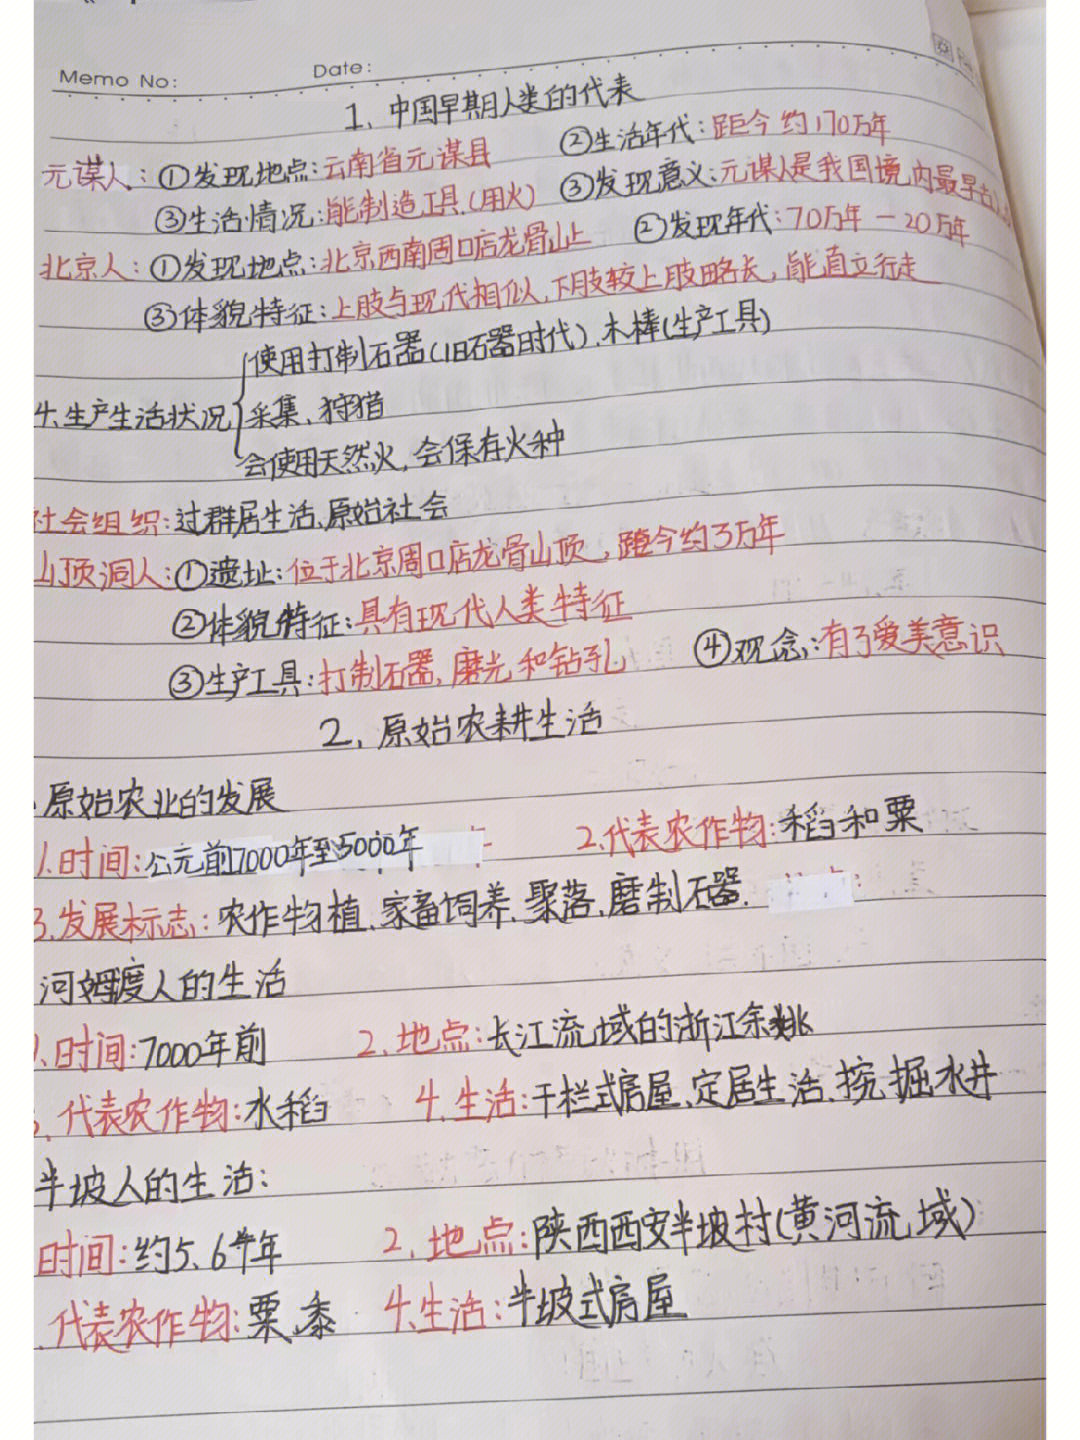 Memo No: Date:
1、中国早期人类的代表
元谋人：①发现地点：云南省元谋县 ②生活年代：距今约170万年
③生活情况：能制造工具（用火） ③发现意义：元谋人是我国境内最早
北京人：①发现地点：北京西南周口店龙骨山上 ②发现年代：70万年－20万年
③体貌特征：上肢与现代相似，下肢较上肢略长，能直立行走
使用打制石器（旧石器时代）、木棒（生产工具）
4、生产生活状况 采集、狩猎
会使用天然火，会保存火种
社会组织：过群居生活、原始社会
山顶洞人：①遗址：位于北京周口店龙骨山顶，距今约3万年
②体貌特征：具有现代人类特征
③生产工具：打制石器，磨光和钻孔 ④观念：有了爱美意识
2、原始农耕生活
原始农业的发展
1.时间：公元前7000年至5000年 2.代表农作物：稻和粟
3.发展标志：农作物植、家畜饲养、聚落、磨制石器.
河姆渡人的生活
1.时间：7000年前 2.地点：长江流域的浙江余姚
代表农作物：水稻 4.生活：干栏式房屋、定居生活、挖掘水井
半坡人的生活：
时间：约5、6千年 2.地点：陕西西安半坡村（黄河流域）
代表农作物：粟、黍 4.生活：半坡式房屋